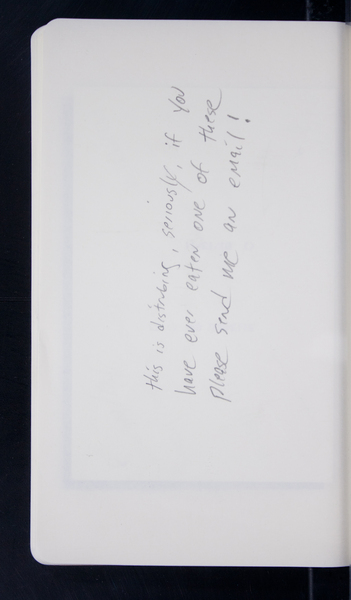 this is distrubing, seriously, if you
have ever eaten one of these
please send me an email!